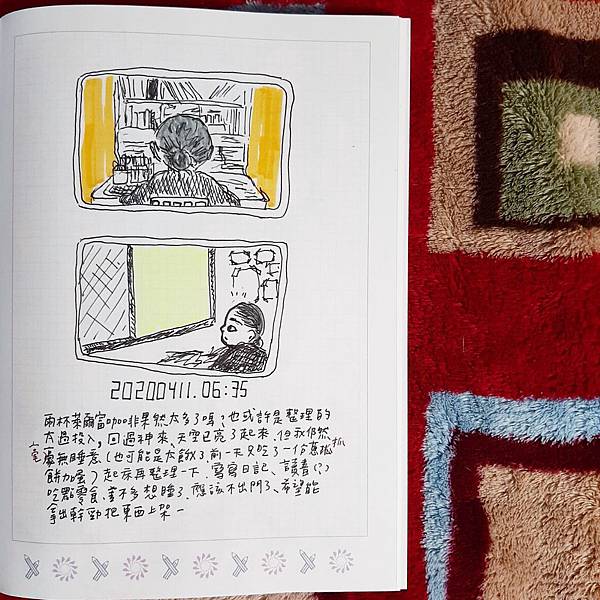 20200411.06:35
兩杯萊爾富咖啡果然太多了嗎?也或許是整理的
太過投入,回過神來,天空已亮了起來.但我仍然
毫無睡意(也可能是太餓了,前一天只吃了一份蔥抓
餅加蛋)起床再整理一下.寫寫日記、讀書(?)
吃點零食.差不多想睡了.應該不出門了、希望能
拿出幹勁把東西上架—